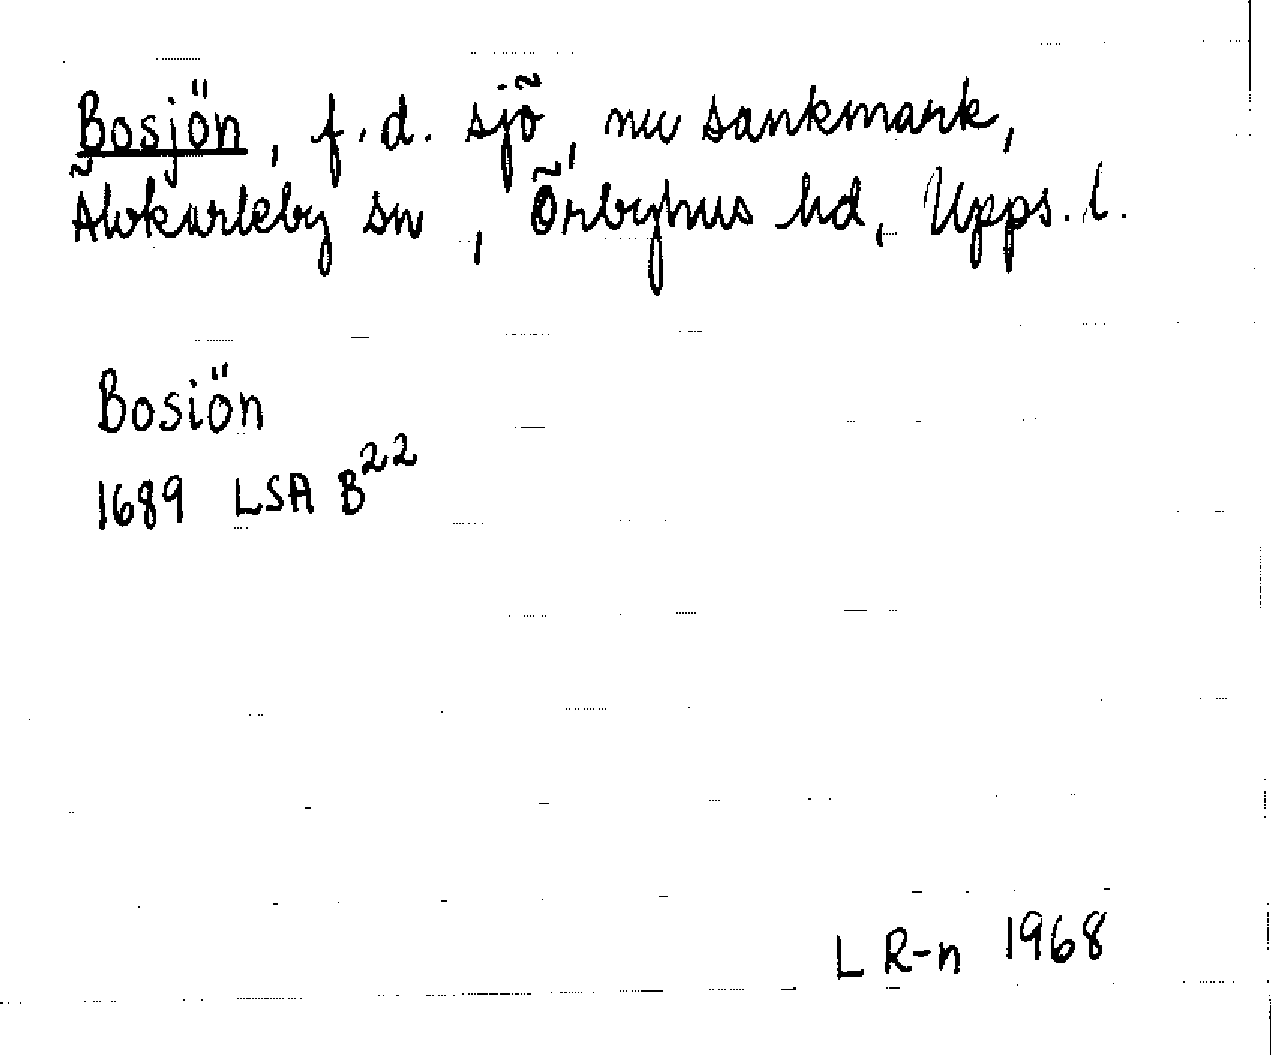 Bosjön, f.d. sjö, nu sankmark,
Älvkarleby sn, Örbyhus hd, Upps. l.
Bosiön
1689 LSA B²²
L R-n 1968